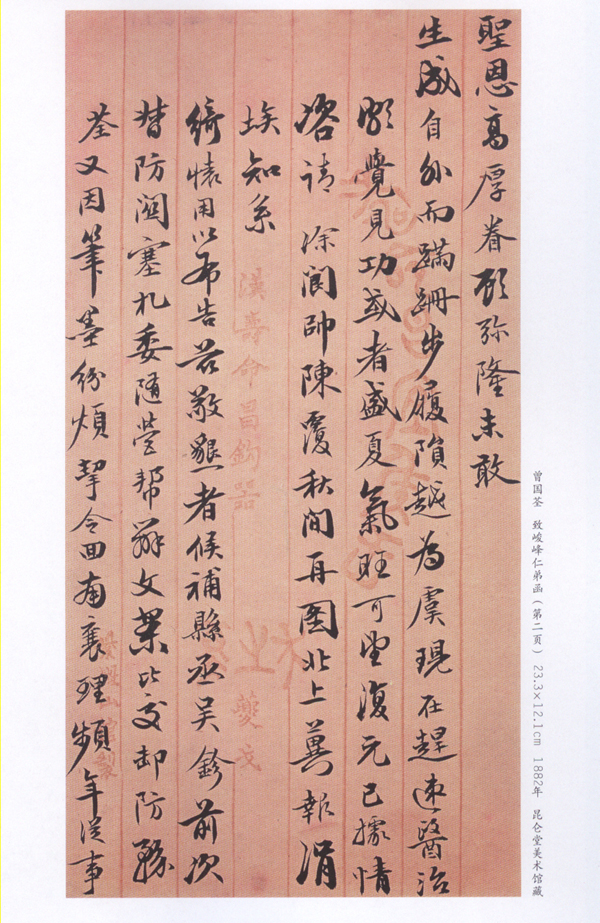 聖恩高厚眷顧弥隆未敢
生成自外而蹣跚步履隕越為虞現在趕速醫治
頗覺見功或者盛夏氣旺可望復元已據情
咨請 涂閬帥陳覆秋間再圖北上冀報涓
埃知系
綺懷用以布告茲敬懇者候補縣丞吳鉁前次
督防關塞札委随營幫辦文案比交卸防務
荃又因筆墨紛煩挈令回南襄理頻年從事
漢壽命昌鉤器
夔文
曾国荃 致峻峰仁弟函（第二页） 23.3×12.1cm 1882年 昆仑堂美术馆藏